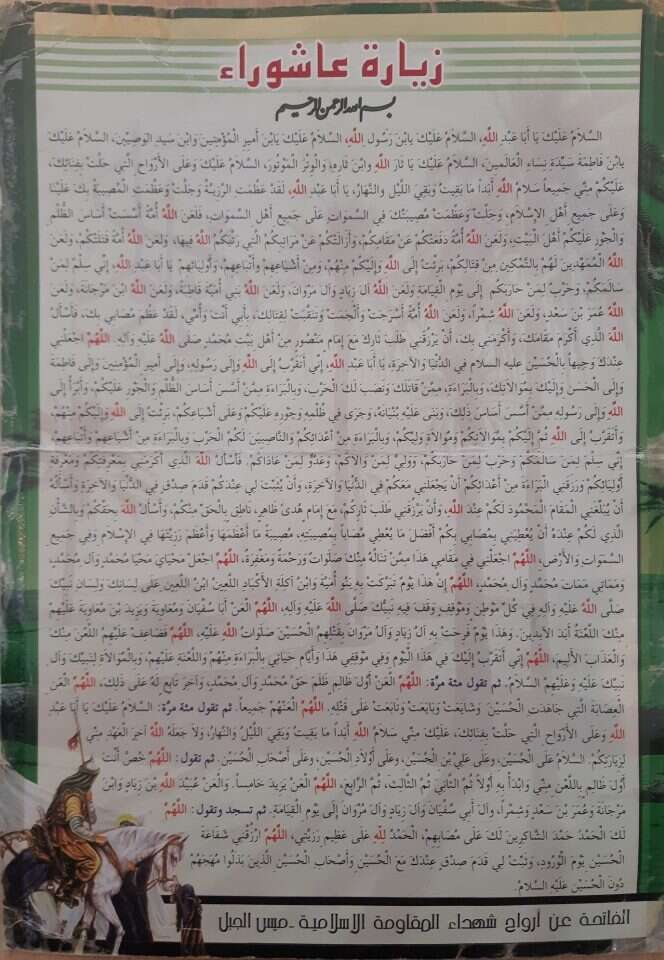 زيارة عاشوراء
بسم الله الرحمن الرحيم
السَّلامُ عَلَيْكَ يَا أَبَا عَبْدِ اللَّهِ، السَّلامُ عَلَيْكَ يَابْنَ رَسُولِ اللَّهِ، السَّلامُ عَلَيْكَ يَابْنَ أَمِيرِ الْمُؤْمِنِينَ وَابْنَ سَيِّدِ الْوَصِيِّينَ، السَّلامُ عَلَيْكَ
يَابْنَ فَاطِمَةَ سَيِّدَةِ نِسَاءِ الْعَالَمِينَ، السَّلامُ عَلَيْكَ يَا ثَارَ اللَّهِ وَابْنَ ثَارِهِ، وَالْوِتْرَ الْمَوْتُورَ، السَّلامُ عَلَيْكَ وَعَلَى الأَرْوَاحِ الَّتِي حَلَّتْ بِفِنَائِكَ،
عَلَيْكُمْ مِنِّي جَمِيعاً سَلامُ اللَّهِ أَبَداً مَا بَقِيتُ وَبَقِيَ اللَّيْلُ وَالنَّهَارُ، يَا أَبَا عَبْدِ اللَّهِ، لَقَدْ عَظُمَتِ الرَّزِيَّةُ وَجَلَّتْ وَعَظُمَتِ الْمُصِيبَةُ بِكَ عَلَيْنَا
وَعَلَى جَمِيعِ أَهْلِ الإِسْلامِ، وَجَلَّتْ وَعَظُمَتْ مُصِيبَتُكَ فِي السَّمَوَاتِ عَلَى جَمِيعِ أَهْلِ السَّمَوَاتِ، فَلَعَنَ اللَّهُ أُمَّةً أَسَّسَتْ أَسَاسَ الظُّلْمِ
وَالْجَوْرِ عَلَيْكُمْ أَهْلَ الْبَيْتِ، وَلَعَنَ اللَّهُ أُمَّةً دَفَعَتْكُمْ عَنْ مَقَامِكُمْ، وَأَزَالَتْكُمْ عَنْ مَرَاتِبِكُمُ الَّتِي رَتَّبَكُمُ اللَّهُ فِيهَا، وَلَعَنَ اللَّهُ أُمَّةً قَتَلَتْكُمْ، وَلَعَنَ
اللَّهُ الْمُمَهِّدِينَ لَهُمْ بِالتَّمْكِينِ مِنْ قِتَالِكُمْ، بَرِئْتُ إِلَى اللَّهِ وَإِلَيْكُمْ مِنْهُمْ، وَمِنْ أَشْيَاعِهِمْ وَأَتْبَاعِهِمْ، وَأَوْلِيَائِهِمْ يَا أَبَا عَبْدِ اللَّهِ، إِنِّي سِلْمٌ لِمَنْ
سَالَمَكُمْ، وَحَرْبٌ لِمَنْ حَارَبَكُمْ إِلَى يَوْمِ الْقِيَامَةِ وَلَعَنَ اللَّهُ آلَ زِيَادٍ وَآلَ مَرْوَانَ، وَلَعَنَ اللَّهُ بَنِي أُمَيَّةَ قَاطِبَةً، وَلَعَنَ اللَّهُ ابْنَ مَرْجَانَةَ، وَلَعَنَ
اللَّهُ عُمَرَ بْنَ سَعْدٍ، وَلَعَنَ اللَّهُ شِمْراً، وَلَعَنَ اللَّهُ أُمَّةً أَسْرَجَتْ وَأَلْجَمَتْ وَتَنَقَّبَتْ لِقِتَالِكَ، بِأَبِي أَنْتَ وَأُمِّي، لَقَدْ عَظُمَ مُصَابِي بِكَ، فَأَسْأَلُ
اللَّهَ الَّذِي أَكْرَمَ مَقَامَكَ، وَأَكْرَمَنِي بِكَ، أَنْ يَرْزُقَنِي طَلَبَ ثَارِكَ مَعَ إِمَامٍ مَنْصُورٍ مِنْ أَهْلِ بَيْتِ مُحَمَّدٍ صَلَّى اللَّهُ عَلَيْهِ وَآلِهِ. اللَّهُمَّ اجْعَلْنِي
عِنْدَكَ وَجِيهاً بِالْحُسَيْنِ عليه السلام فِي الدُّنْيَا وَالآخِرَةِ، يَا أَبَا عَبْدِ اللَّهِ، إِنِّي أَتَقَرَّبُ إِلَى اللَّهِ وَإِلَى رَسُولِهِ، وَإِلَى أَمِيرِ الْمُؤْمِنِينَ وَإِلَى فَاطِمَةَ
وَإِلَى الْحَسَنِ وَإِلَيْكَ بِمُوَالاتِكَ، وَبِالْبَرَاءَةِ، مِمَّنْ قَاتَلَكَ وَنَصَبَ لَكَ الْحَرْبَ، وَبِالْبَرَاءَةِ مِمَّنْ أَسَّسَ أَسَاسَ الظُّلْمِ وَالْجَوْرِ عَلَيْكُمْ، وَأَبْرَأُ إِلَى
اللَّهِ وَإِلَى رَسُولِهِ مِمَّنْ أَسَّسَ أَسَاسَ ذلِكَ، وَبَنَى عَلَيْهِ بُنْيَانَهُ، وَجَرَى فِي ظُلْمِهِ وَجَوْرِهِ عَلَيْكُمْ وَعَلَى أَشْيَاعِكُمْ، بَرِئْتُ إِلَى اللَّهِ وَإِلَيْكُمْ مِنْهُمْ،
وَأَتَقَرَّبُ إِلَى اللَّهِ ثُمَّ إِلَيْكُمْ بِمُوَالاتِكُمْ وَمُوَالاةِ وَلِيِّكُمْ، وَبِالْبَرَاءَةِ مِنْ أَعْدَائِكُمْ وَالنَّاصِبِينَ لَكُمُ الْحَرْبَ وَبِالْبَرَاءَةِ مِنْ أَشْيَاعِهِمْ وَأَتْبَاعِهِمْ،
إِنِّي سِلْمٌ لِمَنْ سَالَمَكُمْ وَحَرْبٌ لِمَنْ حَارَبَكُمْ، وَوَلِيٌّ لِمَنْ وَالاكُمْ، وَعَدُوٌّ لِمَنْ عَادَاكُمْ. فَأَسْأَلُ اللَّهَ الَّذِي أَكْرَمَنِي بِمَعْرِفَتِكُمْ وَمَعْرِفَةِ
أَوْلِيَائِكُمْ وَرَزَقَنِي الْبَرَاءَةَ مِنْ أَعْدَائِكُمْ أَنْ يَجْعَلَنِي مَعَكُمْ فِي الدُّنْيَا وَالآخِرَةِ، وَأَنْ يُثَبِّتَ لِي عِنْدَكُمْ قَدَمَ صِدْقٍ فِي الدُّنْيَا وَالآخِرَةِ وَأَسْأَلُهُ
أَنْ يُبَلِّغَنِي الْمَقَامَ الْمَحْمُودَ لَكُمْ عِنْدَ اللَّهِ، وَأَنْ يَرْزُقَنِي طَلَبَ ثَارِكُمْ، مَعَ إِمَامِ هُدىً ظَاهِرٍ، نَاطِقٍ بِالْحَقِّ مِنْكُمْ، وَأَسْأَلُ اللَّهَ بِحَقِّكُمْ وَبِالشَّأْنِ
الَّذِي لَكُمْ عِنْدَهُ أَنْ يُعْطِيَنِي بِمُصَابِي بِكُمْ أَفْضَلَ مَا يُعْطِي مُصَاباً بِمُصِيبَتِهِ، مُصِيبَةً مَا أَعْظَمَهَا وَأَعْظَمَ رَزِيَّتَهَا فِي الإِسْلامِ وَفِي جَمِيعِ
السَّمَوَاتِ وَالأَرْضِ، اللَّهُمَّ اجْعَلْنِي فِي مَقَامِي هَذَا مِمَّنْ تَنَالُهُ مِنْكَ صَلَوَاتٌ وَرَحْمَةٌ وَمَغْفِرَةٌ، اللَّهُمَّ اجْعَلْ مَحْيَايَ مَحْيَا مُحَمَّدٍ وَآلِ مُحَمَّدٍ،
وَمَمَاتِي مَمَاتَ مُحَمَّدٍ وَآلِ مُحَمَّدٍ، اللَّهُمَّ إِنَّ هَذَا يَوْمٌ تَبَرَّكَتْ بِهِ بَنُو أُمَيَّةَ وَابْنُ آكِلَةِ الأَكْبَادِ اللَّعِينُ ابْنُ اللَّعِينِ عَلَى لِسَانِكَ وَلِسَانِ نَبِيِّكَ
صَلَّى اللَّهُ عَلَيْهِ وَآلِهِ فِي كُلِّ مَوْطِنٍ وَمَوْقِفٍ وَقَفَ فِيهِ نَبِيُّكَ صَلَّى اللَّهُ عَلَيْهِ وَآلِهِ، اللَّهُمَّ الْعَنْ أَبَا سُفْيَانَ وَمُعَاوِيَةَ وَيَزِيدَ بْنَ مُعَاوِيَةَ عَلَيْهِمْ
مِنْكَ اللَّعْنَةُ أَبَدَ الآبِدِينَ، وَهَذَا يَوْمٌ فَرِحَتْ بِهِ آلُ زِيَادٍ وَآلُ مَرْوَانَ بِقَتْلِهِمُ الْحُسَيْنَ صَلَوَاتُ اللَّهِ عَلَيْهِ، اللَّهُمَّ فَضَاعِفْ عَلَيْهِمُ اللَّعْنَ مِنْكَ
وَالْعَذَابَ الأَلِيمَ، اللَّهُمَّ إِنِّي أَتَقَرَّبُ إِلَيْكَ فِي هَذَا الْيَوْمِ وَفِي مَوْقِفِي هَذَا وَأَيَّامِ حَيَاتِي بِالْبَرَاءَةِ مِنْهُمْ وَاللَّعْنَةِ عَلَيْهِمْ، وَبِالْمُوَالاةِ لِنَبِيِّكَ وَآلِ
نَبِيِّكَ عَلَيْهِ وَعَلَيْهِمُ السَّلامُ. ثم تقول مئة مرّة: اللَّهُمَّ الْعَنْ أَوَّلَ ظَالِمٍ ظَلَمَ حَقَّ مُحَمَّدٍ وَآلِ مُحَمَّدٍ، وَآخِرَ تَابِعٍ لَهُ عَلَى ذلِكَ، اللَّهُمَّ الْعَنِ
الْعِصَابَةَ الَّتِي جَاهَدَتِ الْحُسَيْنَ وَشَايَعَتْ وَبَايَعَتْ وَتَابَعَتْ عَلَى قَتْلِهِ. اللَّهُمَّ الْعَنْهُمْ جَمِيعاً. ثم تقول مئة مرّة: السَّلامُ عَلَيْكَ يَا أَبَا عَبْدِ
اللَّهِ وَعَلَى الأَرْوَاحِ الَّتِي حَلَّتْ بِفِنَائِكَ، عَلَيْكَ مِنِّي سَلامُ اللَّهِ أَبَداً مَا بَقِيتُ وَبَقِيَ اللَّيْلُ وَالنَّهَارُ، وَلا جَعَلَهُ اللَّهُ آخِرَ الْعَهْدِ مِنِّي
لِزِيَارَتِكُمْ. السَّلامُ عَلَى الْحُسَيْنِ، وَعَلَى عَلِيِّ بْنِ الْحُسَيْنِ، وَعَلَى أَوْلادِ الْحُسَيْنِ، وَعَلَى أَصْحَابِ الْحُسَيْنِ. ثم تقول: اللَّهُمَّ خُصَّ أَنْتَ
أَوَّلَ ظَالِمٍ بِاللَّعْنِ مِنِّي وَابْدَأْ بِهِ أَوَّلاً ثُمَّ الثَّانِيَ ثُمَّ الثَّالِثَ، ثُمَّ الرَّابِعَ، اللَّهُمَّ الْعَنْ يَزِيدَ خَامِساً. وَالْعَنْ عُبَيْدَ اللَّهِ بْنَ زِيَادٍ وَابْنَ
مَرْجَانَةَ وَعُمَرَ بْنَ سَعْدٍ وَشِمْراً، وَآلَ أَبِي سُفْيَانَ وَآلَ زِيَادٍ وَآلَ مَرْوَانَ إِلَى يَوْمِ الْقِيَامَةِ. ثم تسجد وتقول: اللَّهُمَّ
لَكَ الْحَمْدُ حَمْدَ الشَّاكِرِينَ لَكَ عَلَى مُصَابِهِمْ، الْحَمْدُ لِلَّهِ عَلَى عَظِيمِ رَزِيَّتِي، اللَّهُمَّ ارْزُقْنِي شَفَاعَةَ
الْحُسَيْنِ يَوْمَ الْوُرُودِ، وَثَبِّتْ لِي قَدَمَ صِدْقٍ عِنْدَكَ مَعَ الْحُسَيْنِ وَأَصْحَابِ الْحُسَيْنِ الَّذِينَ بَذَلُوا مُهَجَهُمْ
دُونَ الْحُسَيْنِ عَلَيْهِ السَّلامُ.
الفاتحة عن أرواح شهداء المقاومة الإسلامية - ميس الجبل